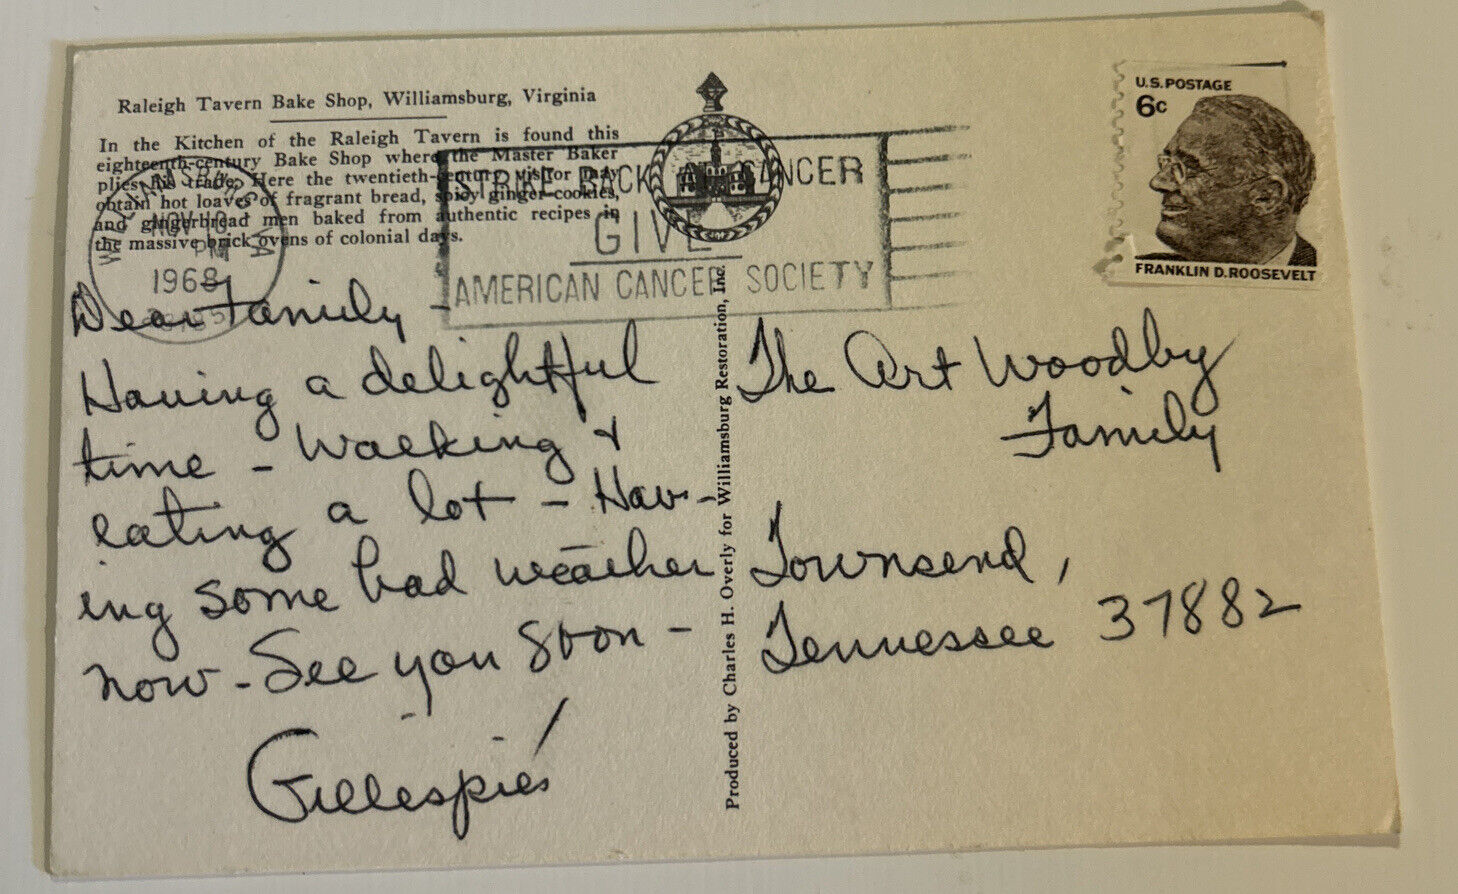 Raleigh Tavern Bake Shop, Williamsburg, Virginia
In the Kitchen of the Raleigh Tavern is found this
eighteenth-century Bake Shop where the Master Baker
plies his trade. Here the twentieth-century visitor may
obtain hot loaves of fragrant bread, spicy ginger cookies,
and gingerbread men baked from authentic recipes in
the massive brick ovens of colonial days.
WILLIAMSBURG VA
NOV 10
PM
1968
STRIKE BACK AT CANCER
GIVE
AMERICAN CANCER SOCIETY
U.S. POSTAGE
6c
FRANKLIN D. ROOSEVELT
Dear Family -
Having a delightful
time - Walking &
eating a lot - Hav-
ing some bad weather
now - See you soon -
Gillespie's
Produced by Charles H. Overly for Williamsburg Restoration, Inc.
The Art Woodby
Family
Townsend,
Tennessee 37882